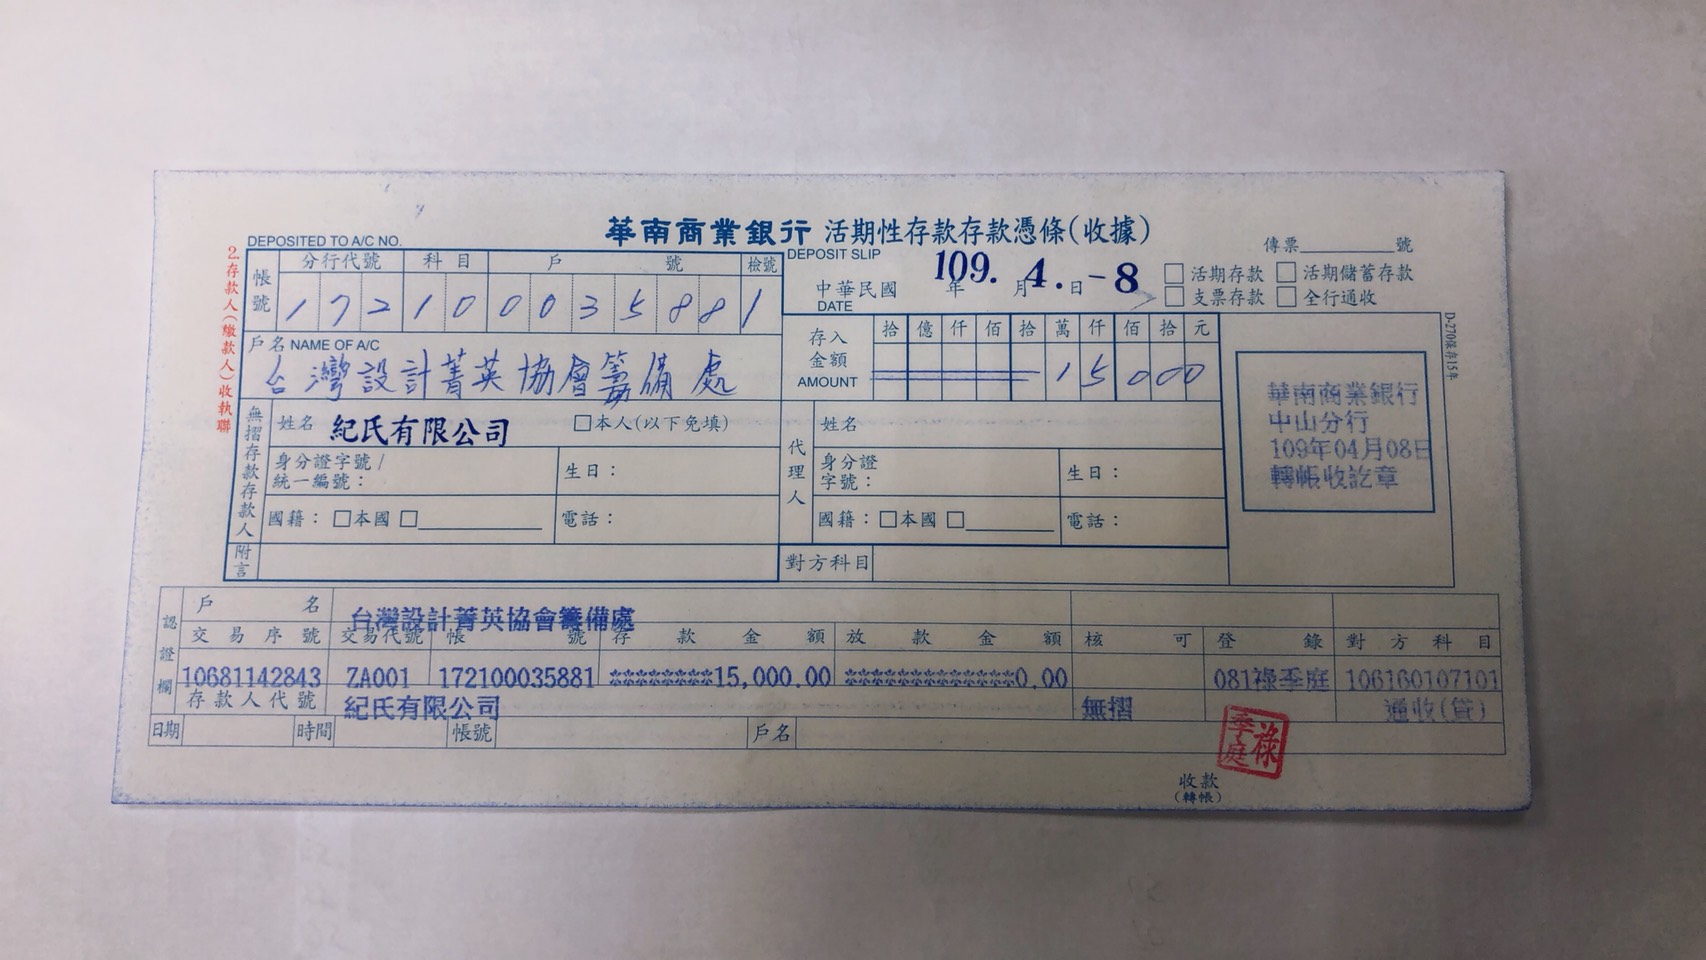 華南商業銀行 活期性存款存款憑條(收據)
DEPOSIT SLIP
傳票 號
DEPOSITED TO A/C NO.
2.存款人(繳款人)收執聯
帳號 分行代號 科目 戶號 檢號
1 7 2 1 0 0 0 3 5 8 8 1
中華民國 109. 年 4. 月 -8 日
DATE
□活期存款 □活期儲蓄存款
□支票存款 □全行通收
戶名 NAME OF A/C
台灣設計菁英協會籌備處
存入金額 AMOUNT
拾 億 仟 佰 拾 萬 仟 佰 拾 元
1 5 0 0 0
D-270保存15年
華南商業銀行
中山分行
109年04月08日
轉帳收訖章
無摺存款存款人
姓名 紀氏有限公司 □本人(以下免填)
身分證字號/
統一編號: 生日:
國籍:□本國 □ 電話:
代理人
姓名
身分證
字號: 生日:
國籍:□本國 □ 電話:
附言
對方科目
認證欄
戶名 台灣設計菁英協會籌備處
交易序號 交易代號 帳號 存款金額 放款金額 核可 登錄 對方科目
10681142843 ZA001 172100035881 ********15,000.00 *************0.00 081祿季庭 106160107101
存款人代號 紀氏有限公司 無摺 通收(貸)
日期 時間 帳號 戶名
祿季庭
收款
(轉帳)